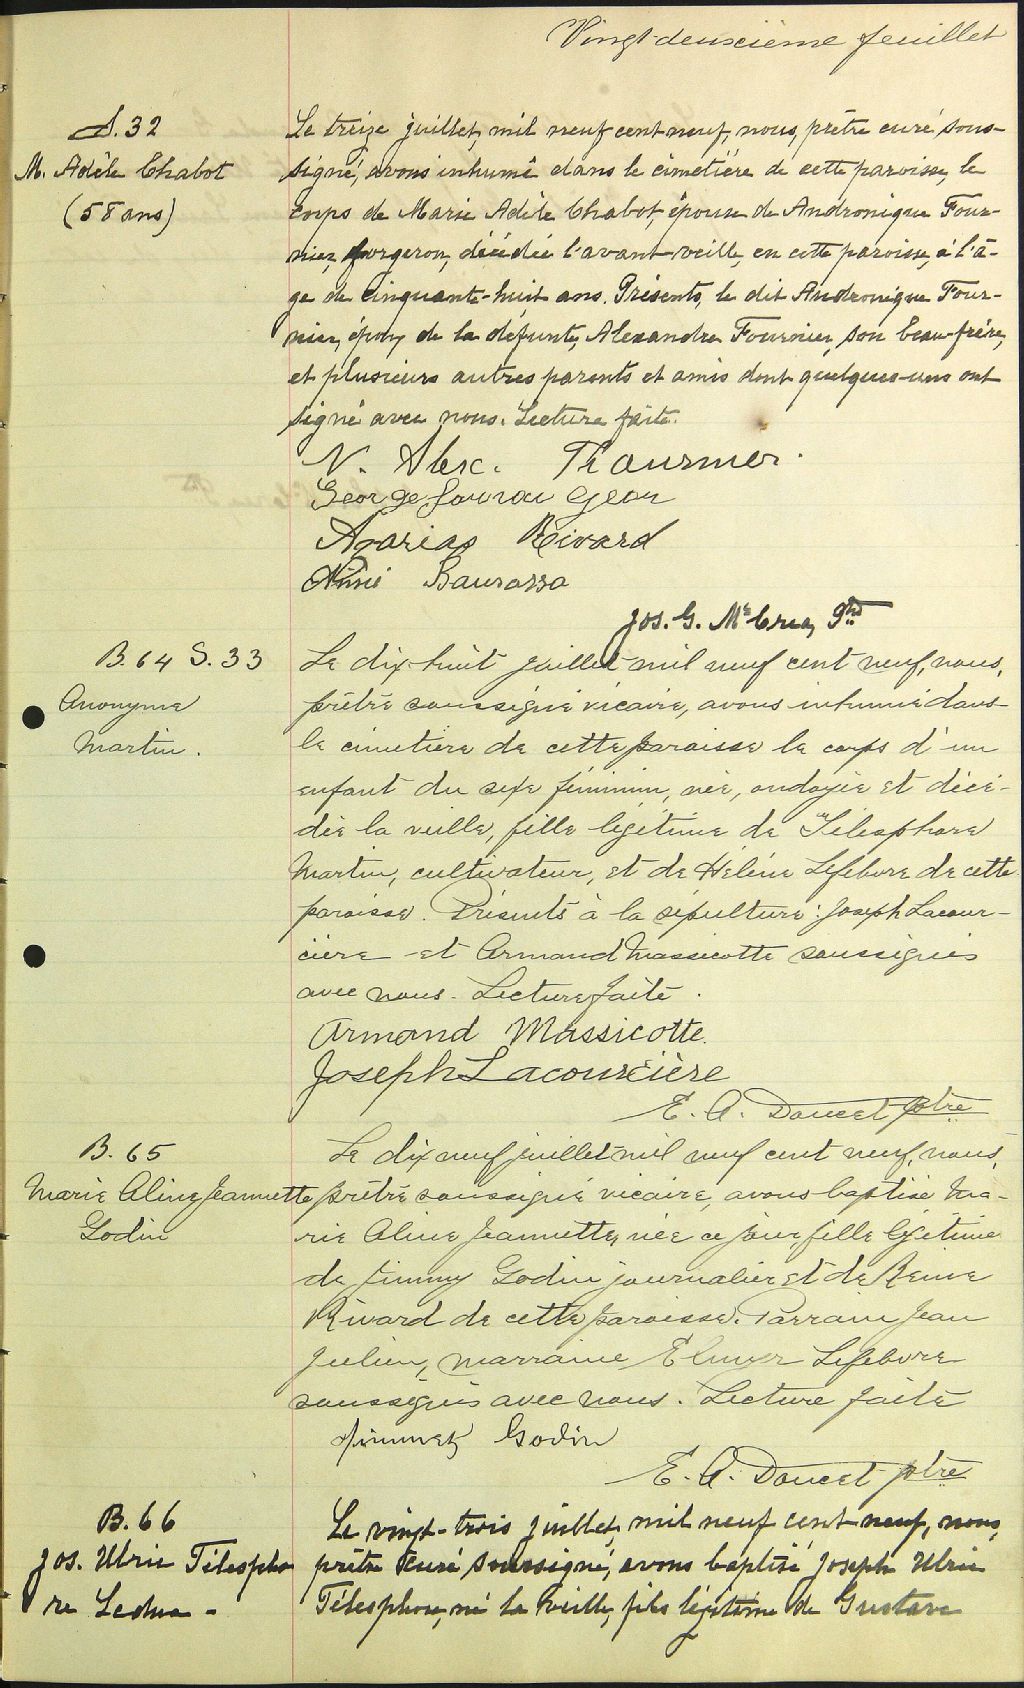 Vingt-deuxième feuillet
S. 32
M. Adèle Chabot
(58 ans)
Le treize juillet, mil neuf cent neuf, nous, prêtre curé sous-
signé, avons inhumé dans le cimetière de cette paroisse, le
corps de Marie Adèle Chabot, épouse de Andronique Four-
nier, forgeron, décédée l'avant-veille, en cette paroisse, à l'â-
ge de cinquante-huit ans. Présents, le dit Andronique Four-
nier, époux de la défunte, Alexandre Fournier, son beau-frère,
et plusieurs autres parents et amis dont quelques-uns ont
signé avec nous. Lecture faite.
N. Alex.
George
Azarias Rivard
Jos. G. McCrea, Ptre
B. 64 S. 33
Anonyme
Martin.
Le dix-huit juillet mil neuf cent neuf, nous,
prêtre soussigné vicaire, avons inhumé dans
le cimetière de cette paroisse le corps d'un
enfant du sexe féminin, née, ondoyée et décé-
dée la veille, fille légitime de Télesphore
Martin, cultivateur, et de Hélène Lefebvre de cette
paroisse. Présents à la sépulture: Joseph Lacour-
cière et Armand Massicotte soussignés
avec nous. Lecture faite.
Armand Massicotte
Joseph Lacourcière
E. A. Doucet ptre
B. 65
Marie Aline Jeannette
Godin
Le dix neuf juillet mil neuf cent neuf, nous,
prêtre soussigné vicaire, avons baptisé Ma-
rie Aline Jeannette, née ce jour, fille légitime
de Jimmy Godin journalier et de Reine
Rivard de cette paroisse. Parrain Jean
Julien, marraine Lefebvre
soussignés avec nous. Lecture faite
Godin
E. A. Doucet ptre
B. 66
Jos. Ulric Télespho
re Leduc -
Le vingt-trois juillet, mil neuf cent neuf, nous,
prêtre curé soussigné, avons baptisé Joseph Ulric
Télesphore, né la veille, fils légitime de Gustave